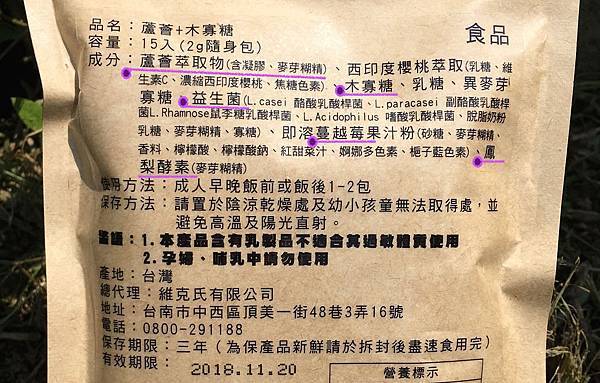 品名：蘆薈+木寡糖
食品
容量：15入(2g隨身包)
成分：蘆薈萃取物(含凝膠、麥芽糊精)、西印度櫻桃萃取(乳糖、維
生素C、濃縮西印度櫻桃、焦糖色素)、木寡糖、乳糖、異麥芽
寡糖、益生菌(L.casei 酪酸乳酸桿菌、L.paracasei 副酪酸乳酸桿
菌L.Rhamnose鼠李糖乳酸桿菌、L.Acidophilus 嗜酸乳酸桿菌、脫脂奶粉
乳糖、麥芽糊精、寡糖)、即溶蔓越莓果汁粉(砂糖、麥芽糊精、
香料、檸檬酸、檸檬酸鈉、紅甜菜汁、婀娜多色素、梔子藍色素)、鳳
梨酵素(麥芽糊精)
使用方法：成人早晚飯前或飯後1-2包
保存方法：請置於陰涼乾燥處及幼小孩童無法取得處，並
避免高溫及陽光直射。
1.本產品含有乳製品不適合其過敏體質使用
2.孕婦、哺乳中請勿使用
產地：台灣
總代理：維克氏有限公司
地址：台南市中西區頂美一街48巷3弄16號
電話：0800-291188
保存期限：三年（為保產品新鮮請於拆封後盡速食用完）
有效期限：2018.11.20
營養標示